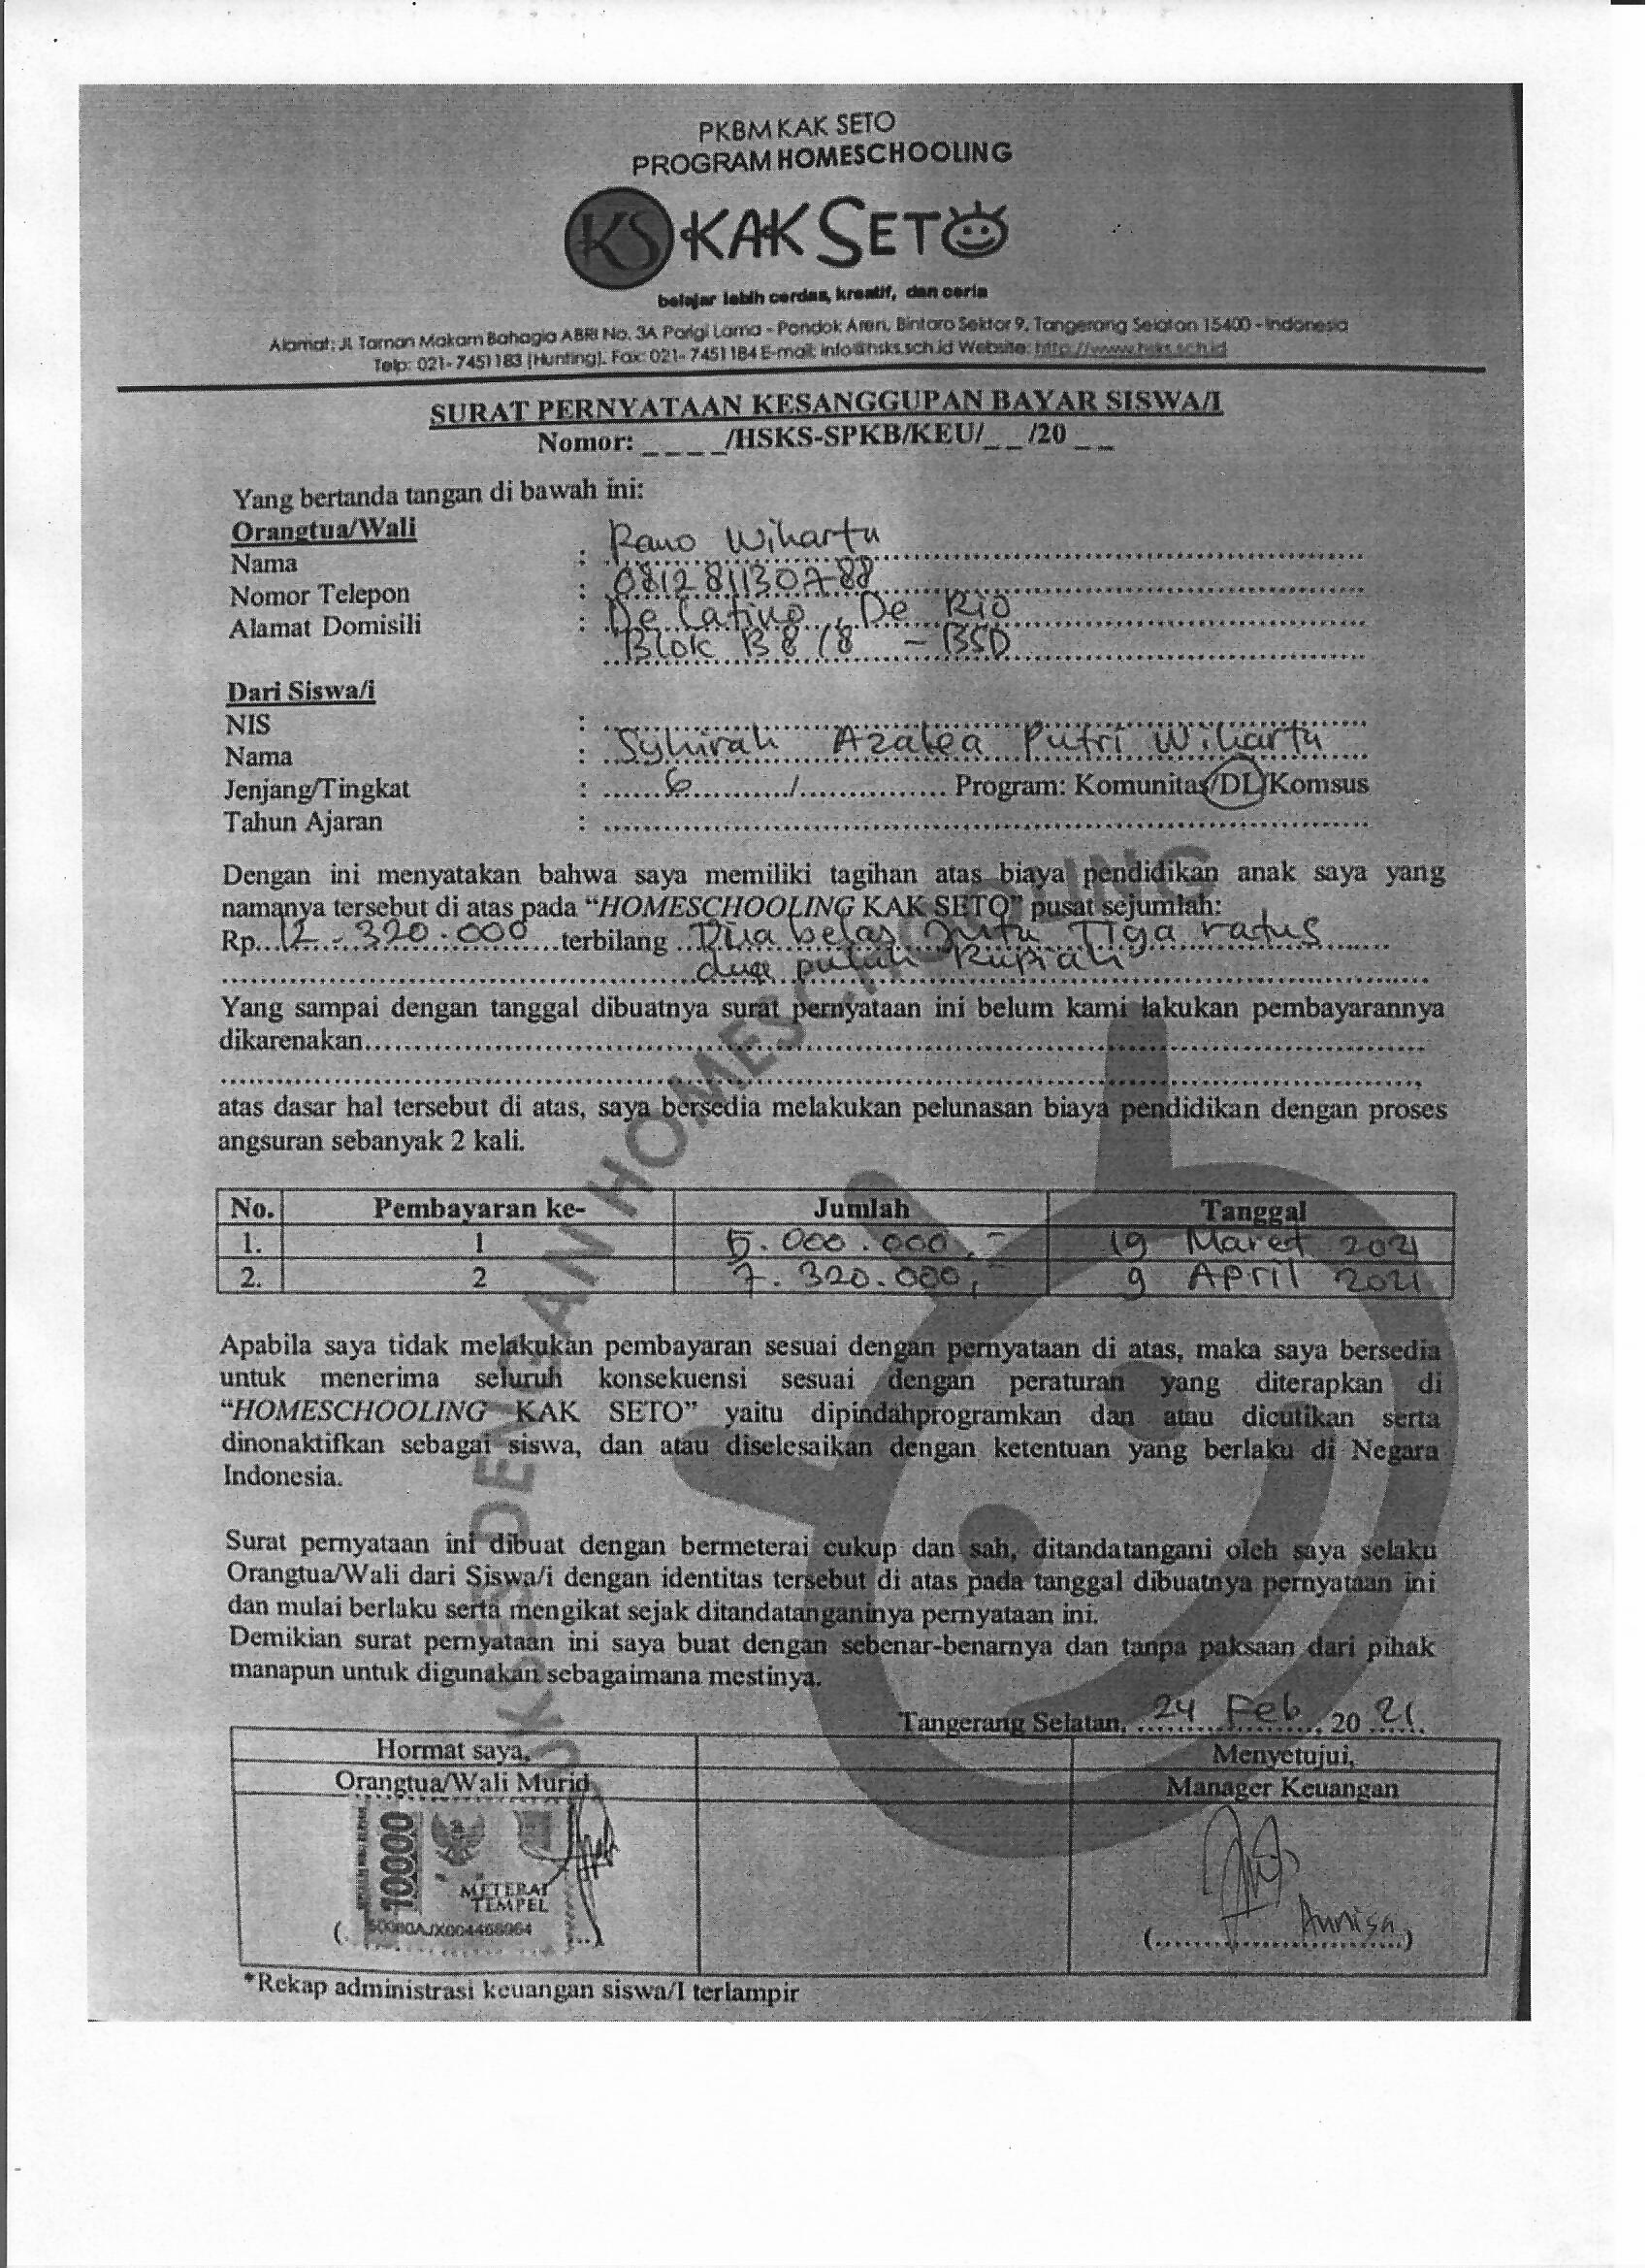 PKBM KAK SETO
PROGRAM HOMESCHOOLING
KS KAK SETO
belajar lebih cerdas, kreatif, dan ceria
Alamat: Jl. Taman Makam Bahagia ABRI No. 3A Parigi Lama - Pondok Aren, Bintaro Sektor 9, Tangerang Selatan 15400 - Indonesia
Telp: 021- 7451183 (Hunting). Fax: 021- 7451184 E-mail: info@hsks.sch.id Website: http://www.hsks.sch.id
SURAT PERNYATAAN KESANGGUPAN BAYAR SISWA/I
Nomor: _ _ _ _/HSKS-SPKB/KEU/_ _ /20 _ _
Yang bertanda tangan di bawah ini:
Orangtua/Wali
Nama : Rano Wihartu
Nomor Telepon : 081281130788
Alamat Domisili : De Latino, De Rio
Blok B8/8 - BSD
Dari Siswa/i
NIS :
Nama : Syhirah Azalea Putri Wihartu
Jenjang/Tingkat : 6 / Program: Komunitas/DL/Komsus
Tahun Ajaran :
Dengan ini menyatakan bahwa saya memiliki tagihan atas biaya pendidikan anak saya yang
namanya tersebut di atas pada “HOMESCHOOLING KAK SETO” pusat sejumlah:
Rp. 12.320.000 terbilang Dua belas Juta Tiga ratus
dua puluh Rupiah
Yang sampai dengan tanggal dibuatnya surat pernyataan ini belum kami lakukan pembayarannya
dikarenakan
atas dasar hal tersebut di atas, saya bersedia melakukan pelunasan biaya pendidikan dengan proses
angsuran sebanyak 2 kali.
No. Pembayaran ke- Jumlah Tanggal
1. 1 5.000.000,- 19 Maret 2021
2. 2 7.320.000,- 9 April 2021
Apabila saya tidak melakukan pembayaran sesuai dengan pernyataan di atas, maka saya bersedia
untuk menerima seluruh konsekuensi sesuai dengan peraturan yang diterapkan di
“HOMESCHOOLING KAK SETO” yaitu dipindahprogramkan dan atau dicutikan serta
dinonaktifkan sebagai siswa, dan atau diselesaikan dengan ketentuan yang berlaku di Negara
Indonesia.
Surat pernyataan ini dibuat dengan bermeterai cukup dan sah, ditandatangani oleh saya selaku
Orangtua/Wali dari Siswa/i dengan identitas tersebut di atas pada tanggal dibuatnya pernyataan ini
dan mulai berlaku serta mengikat sejak ditandatanganinya pernyataan ini.
Demikian surat pernyataan ini saya buat dengan sebenar-benarnya dan tanpa paksaan dari pihak
manapun untuk digunakan sebagaimana mestinya.
Tangerang Selatan, 24 Feb, 20 21.
Hormat saya, Menyetujui,
Orangtua/Wali Murid Manager Keuangan
10000
METERAI
TEMPEL
Annisa
*Rekap administrasi keuangan siswa/I terlampir
DENGAN HOMESCHOOLING